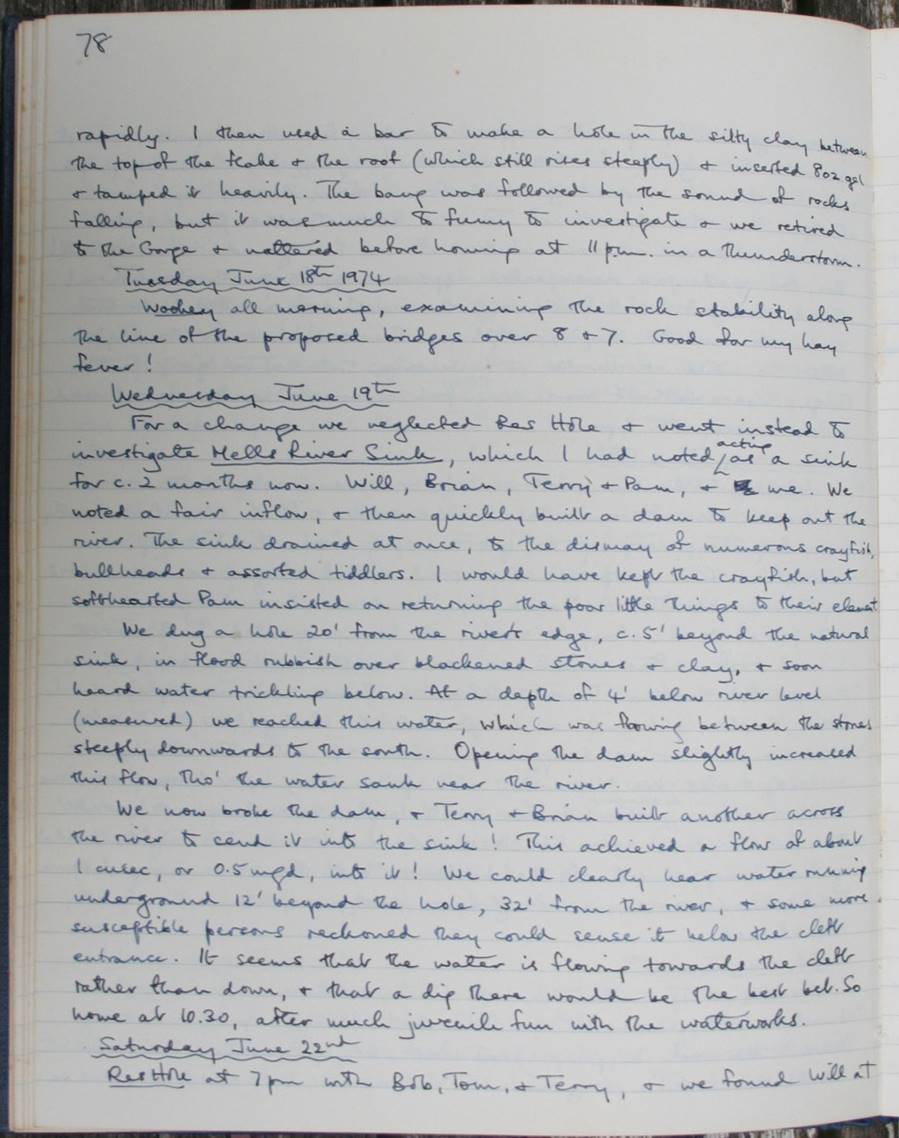 78
rapidly. I then used a bar to make a hole in the silty clay between
the top of the flake & the roof (which still rises steeply) & inserted 8oz gel
& tamped it heavily. The bang was followed by the sound of rocks
falling, but it was much to fumy to investigate & we retired
to the Gorge & nattered before homing at 11 p.m. in a thunderstorm.
Tuesday June 18th 1974
Wookey all morning, examining the rock stability along
the line of the proposed bridges over 8 & 7. Good for my hay
fever!
Wednesday June 19th
For a change we neglected Res Hole & went instead to
investigate Mells River Sink, which I had noted acting as a sink
for c. 2 months now. Will, Brian, Terry & Pam, & me. We
noted a fair inflow, & then quickly built a dam to keep out the
river. The sink drained at once, to the dismay of numerous crayfish,
bullheads & assorted tiddlers. I would have kept the crayfish, but
softhearted Pam insisted on returning the poor little things to their element
We dug a hole 20' from the river's edge, c. 5' beyond the natural
sink, in flood rubbish over blackened stones & clay, & soon
heard water trickling below. At a depth of 4' below river level
(measured) we reached this water, which was flowing between the stones
steeply downwards to the south. Opening the dam slightly increased
this flow, tho' the water sank near the river.
We now broke the dam, & Terry & Brian built another across
the river to send it into the sink! This achieved a flow of about
1 cusec, or 0.5 mgd, into it! We could clearly hear water running
underground 12' beyond the hole, 32' from the river, & some more
susceptible persons reckoned they could sense it below the cleft
entrance. It seems that the water is flowing towards the cleft
rather than down, & that a dig there would be the best bet. So
home at 10.30, after much juvenile fun with the waterworks.
Saturday June 22nd
Res Hole at 7pm with Bob, Tom, & Terry, & we found Will at